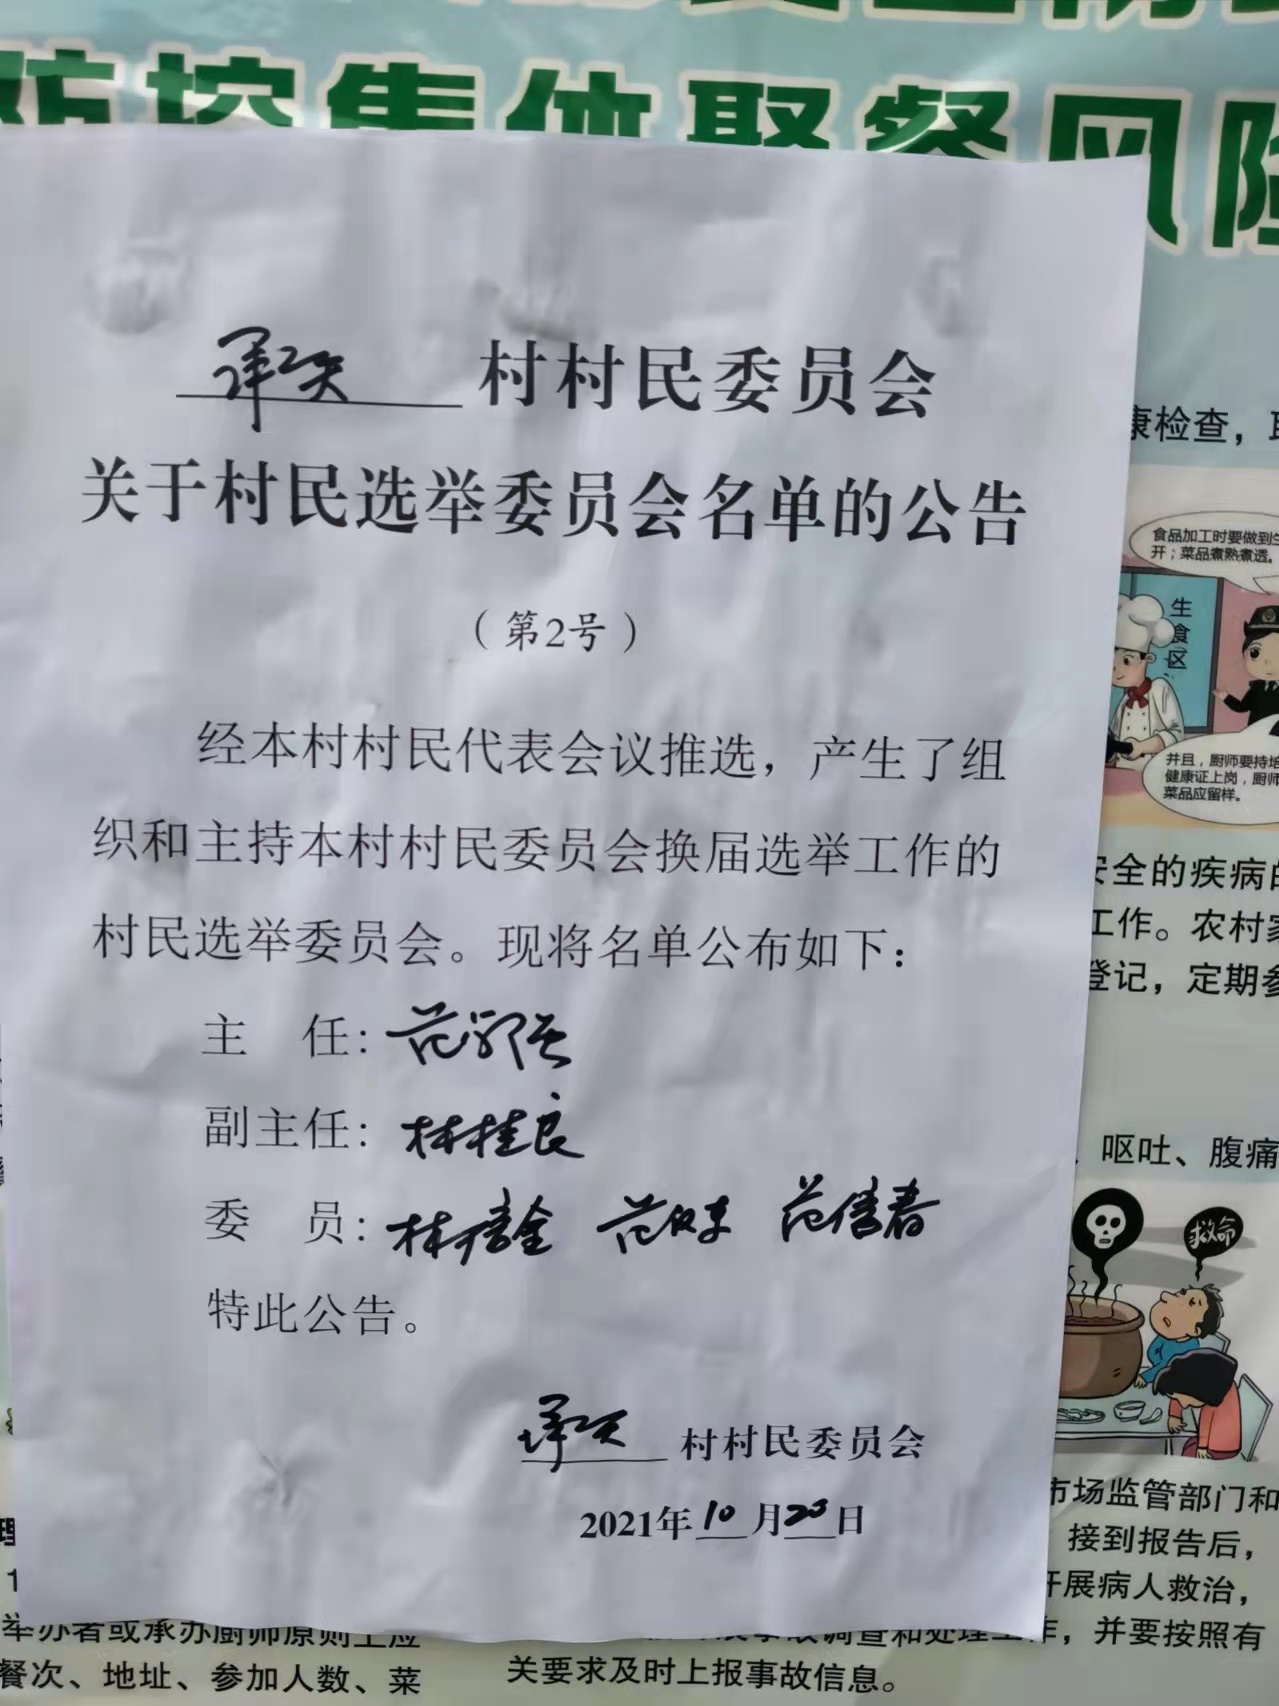 防控集体聚餐风险
村村民委员会
关于村民选举委员会名单的公告
（第2号）
经本村村民代表会议推选，产生了组
织和主持本村村民委员会换届选举工作的
村民选举委员会。现将名单公布如下：
主 任：范
副主任：林桂良
委 员：林 全 范 范 春
特此公告。
村村民委员会
2021年10月23日
康检查，
食品加工时要做到生
开；菜品煮熟煮透。
生食区
并且，厨师要持培
健康证上岗，厨师
菜品应留样。
安全的疾病的
工作。农村家
登记，定期参
、呕吐、腹痛
救命
市场监管部门和
接到报告后，
开展病人救治，
，并要按照有
关要求及时上报事故信息。
举办者或承办厨师原则上应
餐次、地址、参加人数、菜